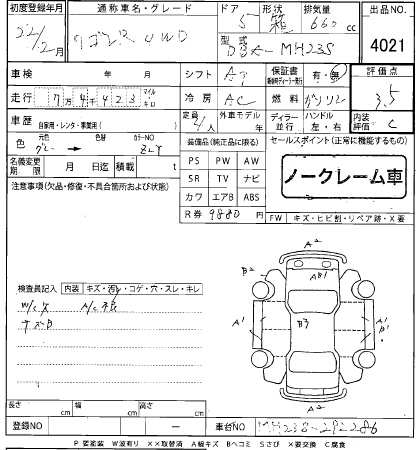 初度登録年月 通称車名・グレード ドア 形状 排気量 出品No.
22/2月 ワゴンR 4WD 5 箱 660cc 4021
型式 DBA-MH23S
車検 年 月 シフト AT 保証書 有・無 評価点
走行 7万4千423 マイル キロ 冷房 AC 燃料 ガソリン 3.5
車歴 自家用・レンタ・事業用( ) 定員 4人 外車モデル 年 ディーラー 並行 ハンドル 左・右 内装評価 C
色 元色 グレー 色替 カラーNo. ZLY 装備品(純正品に限る) セールスポイント(正常に機能するもの)
名義変更期限 月 日迄 積載 t PS PW AW ノークレーム車
注意事項(欠品・修復・不具合箇所および状態) SR TV ナビ
カワ エアB ABS
R券 9880円 FW キズ・ヒビ割・リペア跡・X要
A2
検査員記入 内装 キズ・汚レ・コゲ・穴・スレ・キレ B2 AB1 A2
A/C不良
A1 B3 A1
B2 A2
A2
長さ cm 幅 cm 高さ cm
登録NO ー 車台No. MH23S-292286
P要塗装 W波有り XX取替済 A線キズ Bヘコミ Sさび X要交換 C腐食